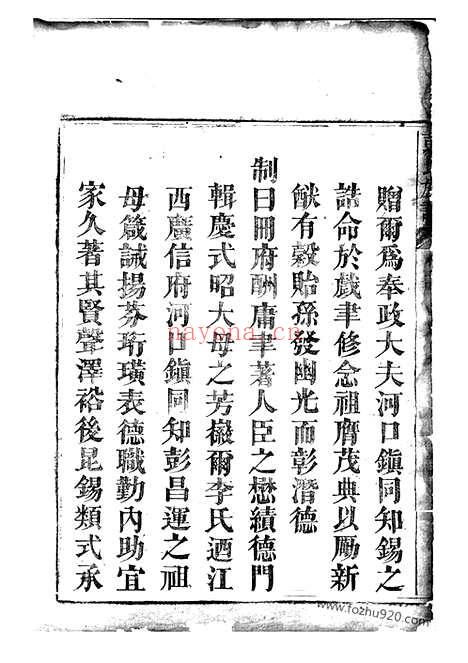 贈爾爲奉政大夫河口鎮同知錫之
誥命於戲聿修念祖膺茂典以勵新
猷有穀貽孫發幽光而彰潛德
制曰冊府酬庸聿著人臣之懋績德門
輯慶式昭大母之芳徽爾李氏迺江
西廣信府河口鎮同知彭昌運之祖
母箴誡揚芬珩璜表德職勤內助宜
家久著其賢聲澤裕後昆錫類式承
nayona.cn
www.fozhu920.com